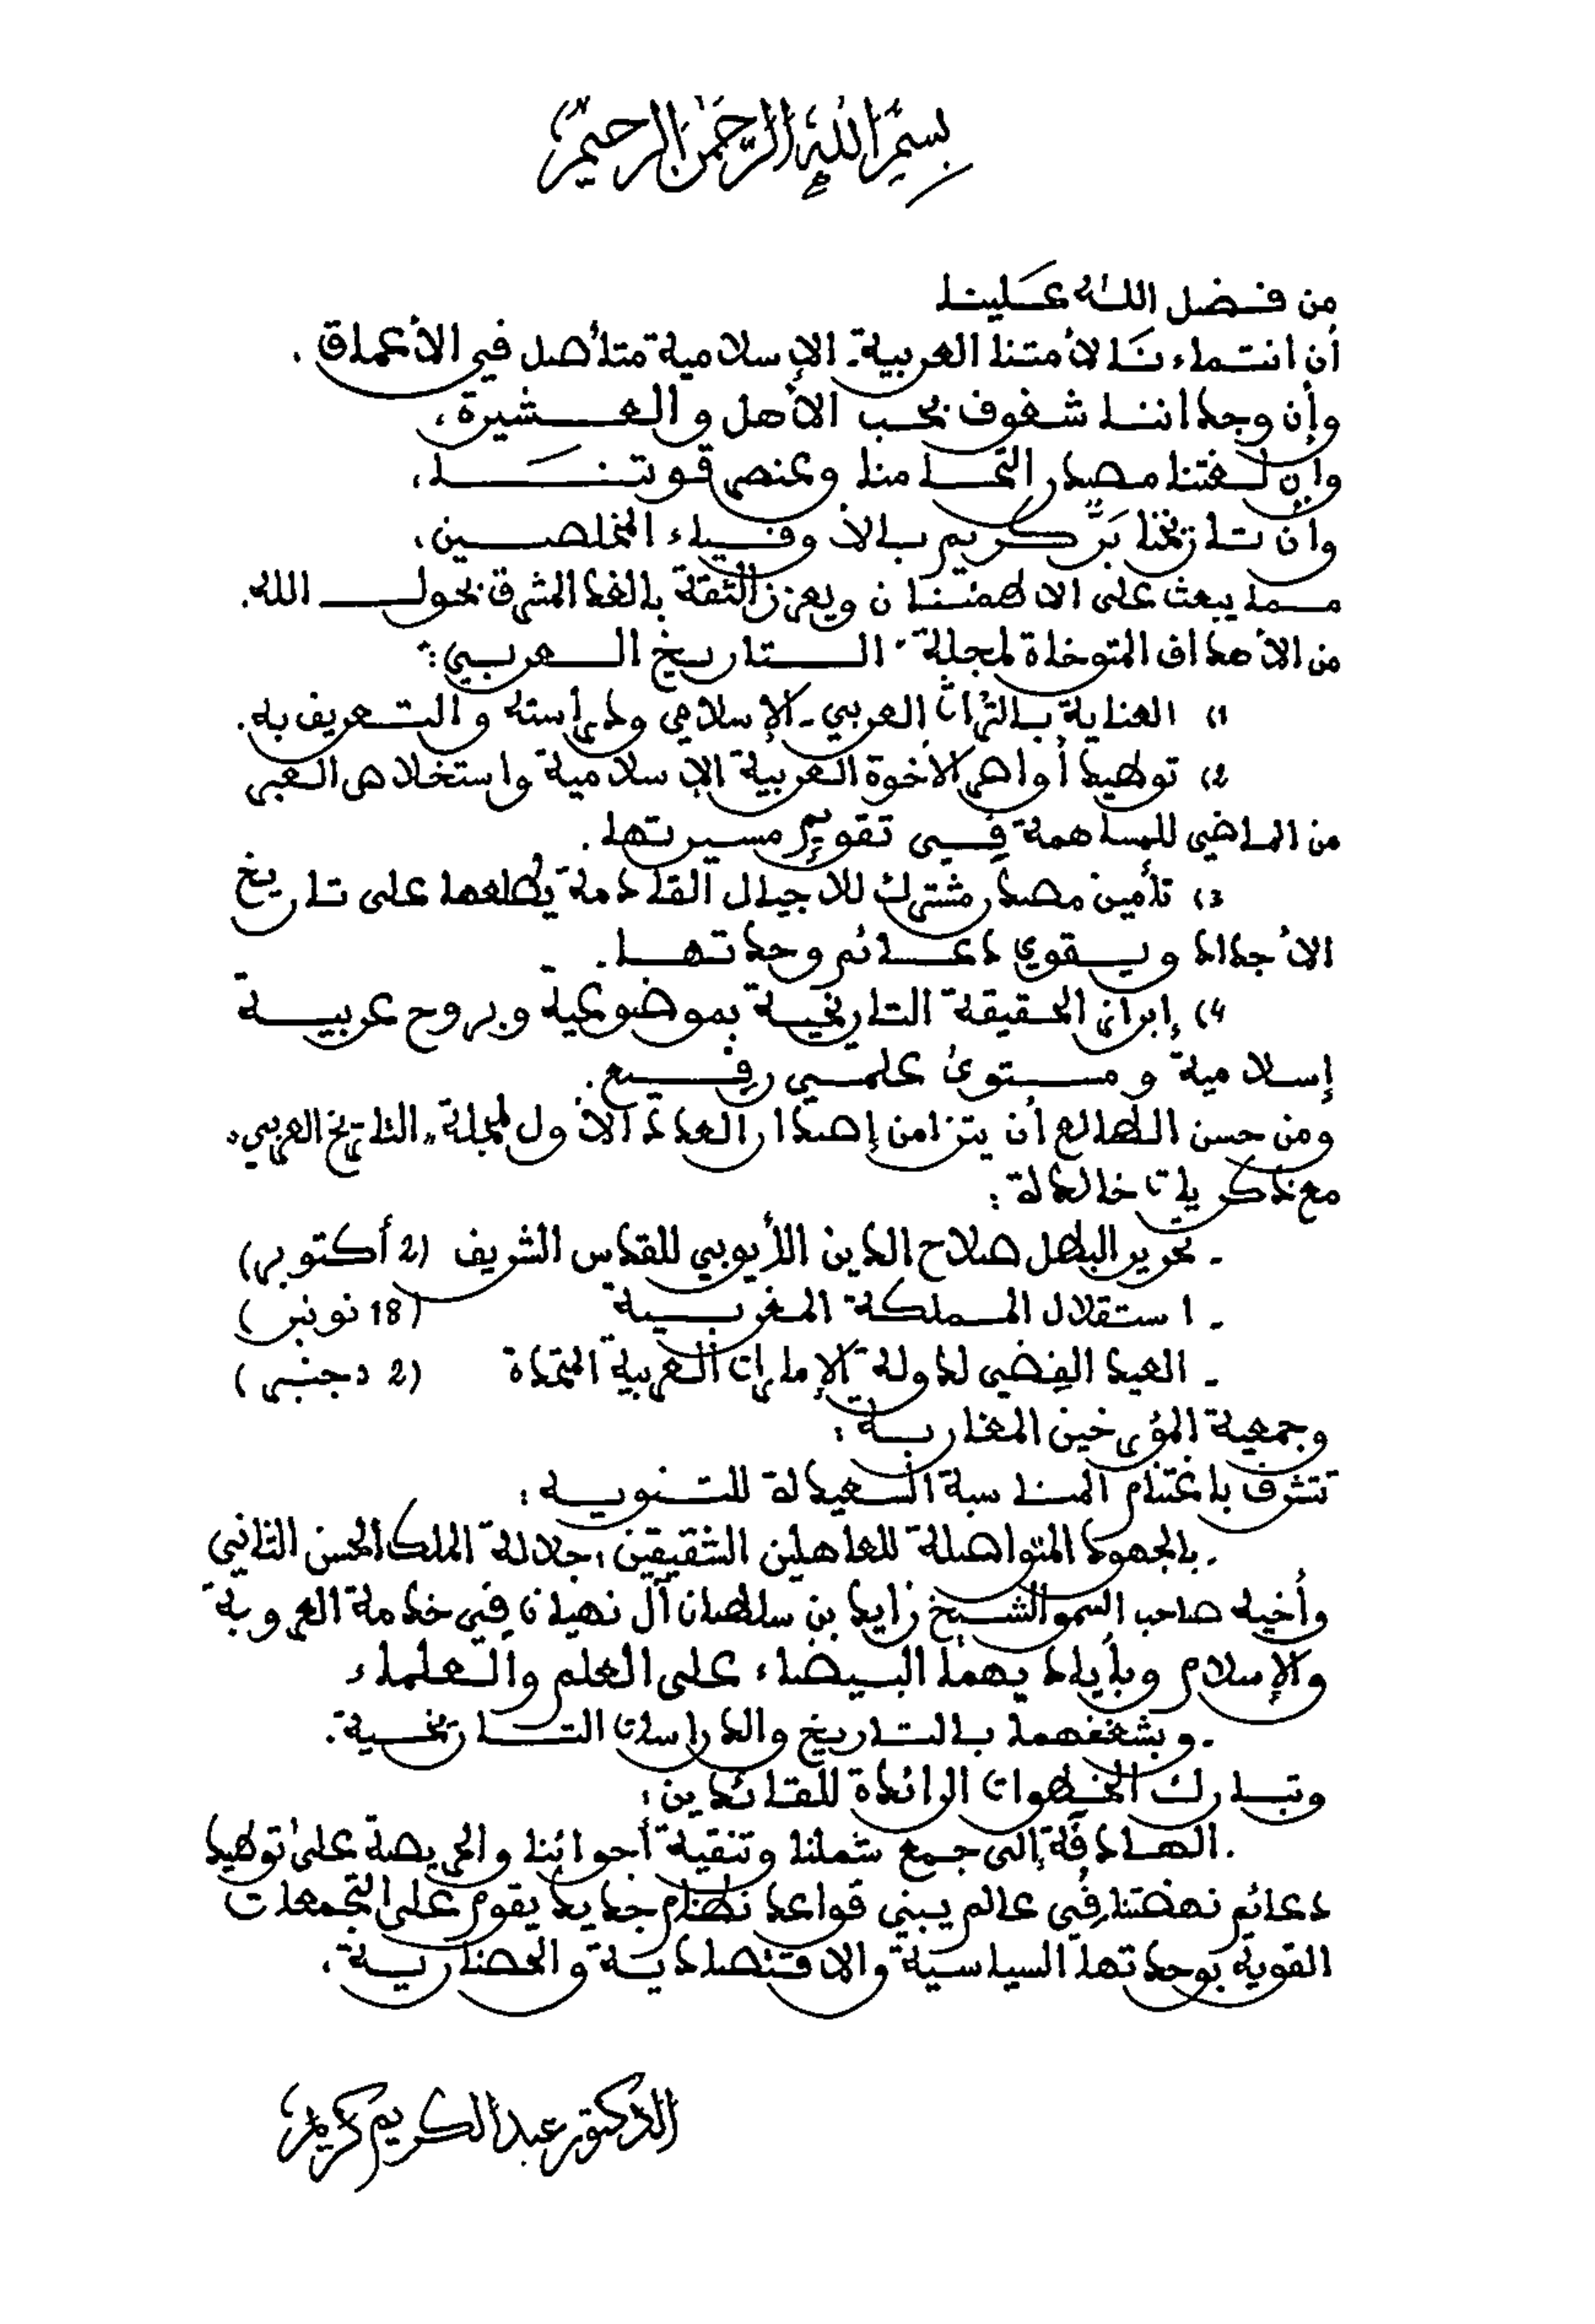 بسم الله الرحمن الرحيم
من فضل الله علينا
أن انتماءنا لأمتنا العربية - الإسلامية متأصل في الأعماق .
وأن وجداننا شغوف بحب الأهل والعشيرة ،
وأن لغتنا مصدر التحامنا وعنصر قوتنا ،
وأن تاريخنا بَرٌّ كريم بالأوفياء المخلصين ،
مما يبعث على الاطمئنان ويعزز الثقة بالغد المشرق بحول الله .
من الأهداف المتوخاة لمجلة "التاريخ العربي" :
1) العناية بالتراث العربي - الإسلامي ودراسته والتعريف به .
2) توطيد أواصر الأخوة العربية الإسلامية واستخلاص العبر
من الماضي للمساهمة في تقويم مسيرتها .
3) تأمين مصدر مشترك للأجيال القادمة يطلعها على تاريخ
الأجداد ويقوي دعائم وحدتها .
4) إبراز الحقيقة التاريخية بموضوعية وبروح عربية
إسلامية ومستوى علمي رفيع .
ومن حسن الطالع أن يتزامن إصدار العدد الأول لمجلة "التاريخ العربي"
مع ذكريات خالدة :
- تحرير البطل صلاح الدين الأيوبي للقدس الشريف (2 أكتوبر)
- استقلال المملكة المغربية (18 نونبر)
- العيد الفضي لدولة الإمارات العربية المتحدة (2 دجنبر)
وجمعية المؤرخين المغاربة :
تتشرف باغتنام المناسبة السعيدة للتنويه :
- بالجهود المتواصلة للعاهلين الشقيقين : جلالة الملك الحسن الثاني
وأخيه صاحب السمو الشيخ زايد بن سلطان آل نهيان في خدمة العروبة
والإسلام وبأياديهما البيضاء على العلم والعلماء
- وبشغفهما بالتاريخ والدراسات التاريخية .
وتبارك الخطوات الرائدة للقائدين :
- الهادفة إلى جمع شملنا وتنقية أجوائنا والحريصة على توطيد
دعائم نهضتنا في عالم يبني قواعد نظام جديد يقوم على التجمعات
القوية بوحدتها السياسية والاقتصادية والحضارية .
الدكتور عبد الكريم كريم